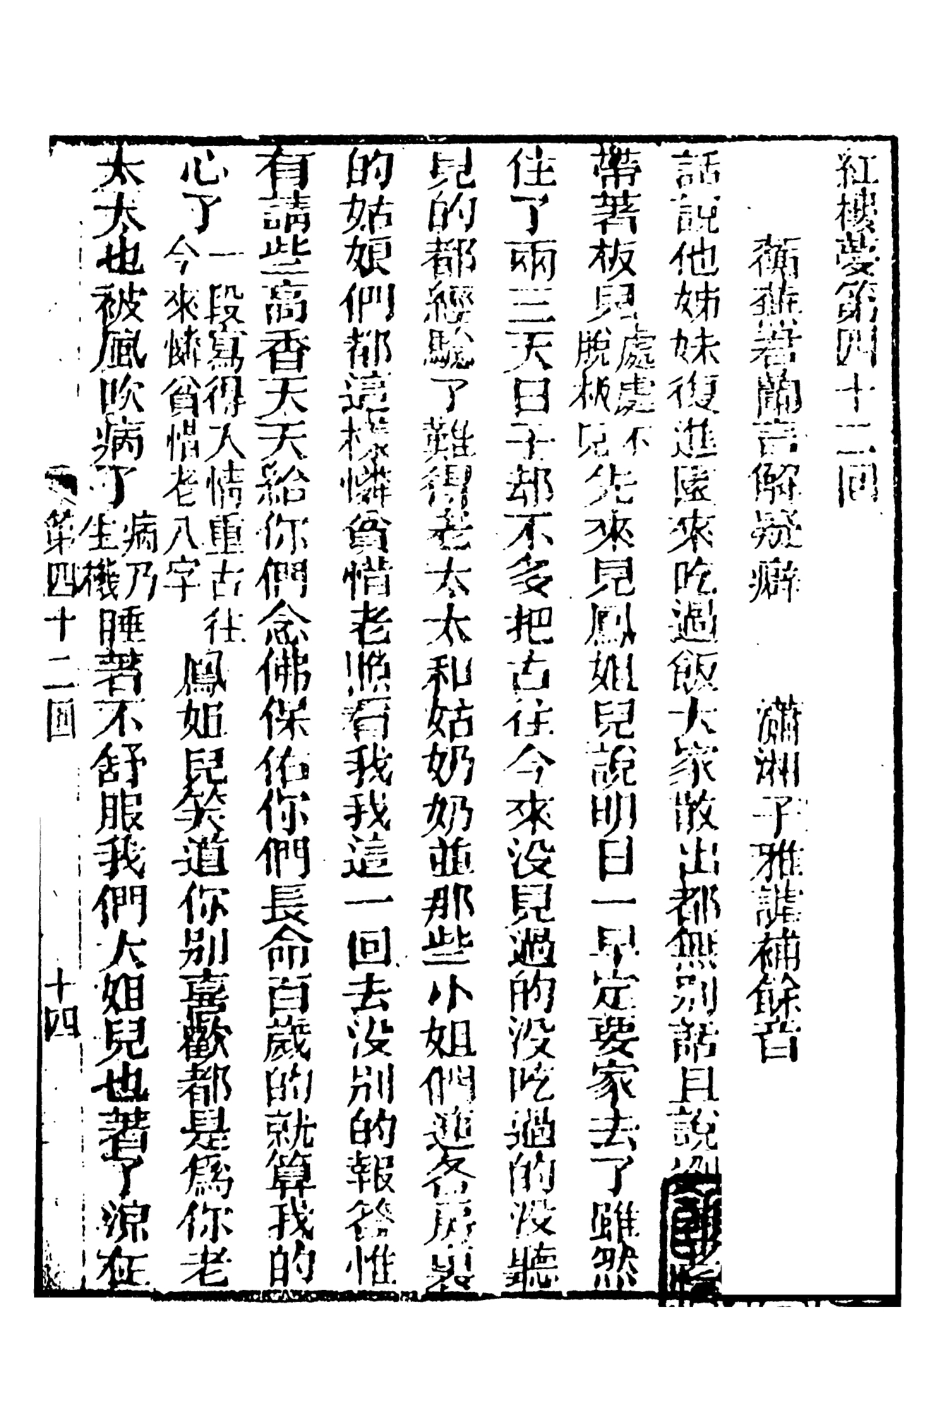 紅樓夢第四十二回
蘅蕪君蘭言解疑癖　瀟湘子雅謔補餘音
話說他姊妹復進園來吃過飯大家散出都無別話且說劉
帶著板兒處處不脫板兒先來見鳳姐兒說明日一早定要家去了雖然
住了兩三天日子却不多把古往今來沒見過的沒吃過的沒聽
見的都經驗了難得老太太和姑奶奶並那些小姐們連各房裏
的姑娘們都這樣憐貧惜老照看我我這一回去没別的報答惟
有請些高香天天給你們念佛保佑你們長命百歲的就算我的
心了一段寫得人情重古往今來憐貧惜老八字鳳姐兒笑道你别喜歡都是爲你老
太太也被風吹病了病乃生機睡著不舒服我們大姐兒也著了涼在
第四十二回　十四